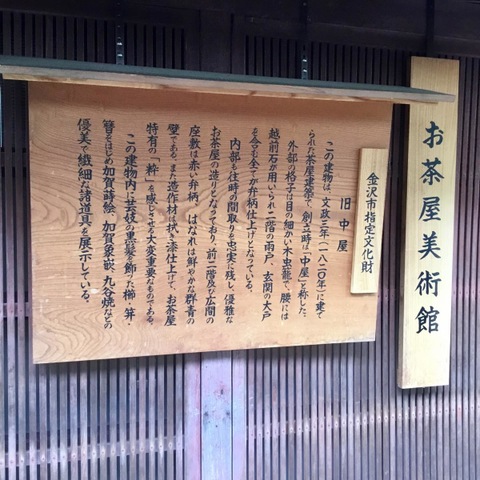 お茶屋美術館
金沢市指定文化財
旧中屋
この建物は、文政三年（一八二〇年）に建て
られた茶屋建築で、創立時は「中屋」と称した。
外部の格子は目の細かい木虫籠で、腰には
越前石が用いられ二階の雨戸、玄関の大戸
を含め全てが弁柄仕上げとなっている。
内部も往時の間取りを忠実に残し、優雅な
お茶屋の造りとなっており、前二階及び広間の
座敷は赤い弁柄、はなれは鮮やかな群青の
壁である。また造作材は拭き漆仕上げで、お茶屋
特有の「粋」を感じさせる大変重要なものである。
この建物内に芸妓の黒髪を飾った櫛・笄・
簪をはじめ加賀蒔絵、加賀象嵌、九谷焼などの
優美で繊細な諸道具を展示している。